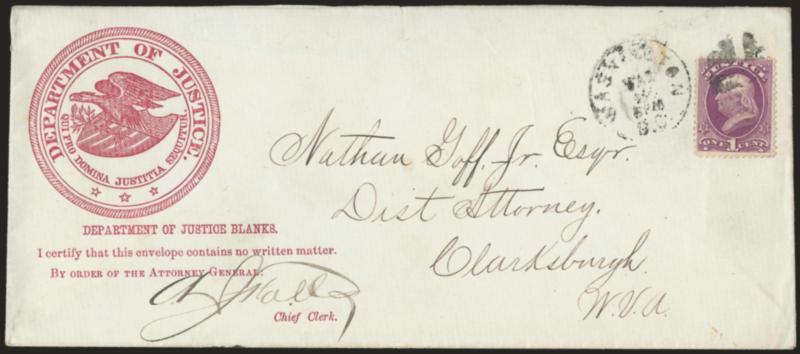 DEPARTMENT OF JUSTICE.
QUI PRO DOMINA JUSTITIA SEQUITUR.
DEPARTMENT OF JUSTICE BLANKS.
I certify that this envelope contains no written matter.
BY ORDER OF THE ATTORNEY GENERAL:
Chief Clerk.
WASHINGTON
D.C.
JUSTICE
ONE 1 CENT
Nathan Goff. Jr. Esqr.
Dist Attorney.
Clarksburgh.
W.Va.